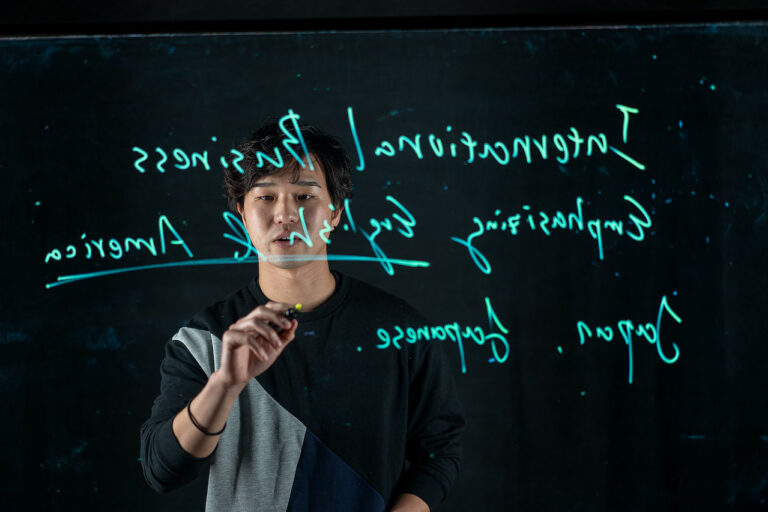 International Business
Emphasizing English & America
Japan. Japanese.